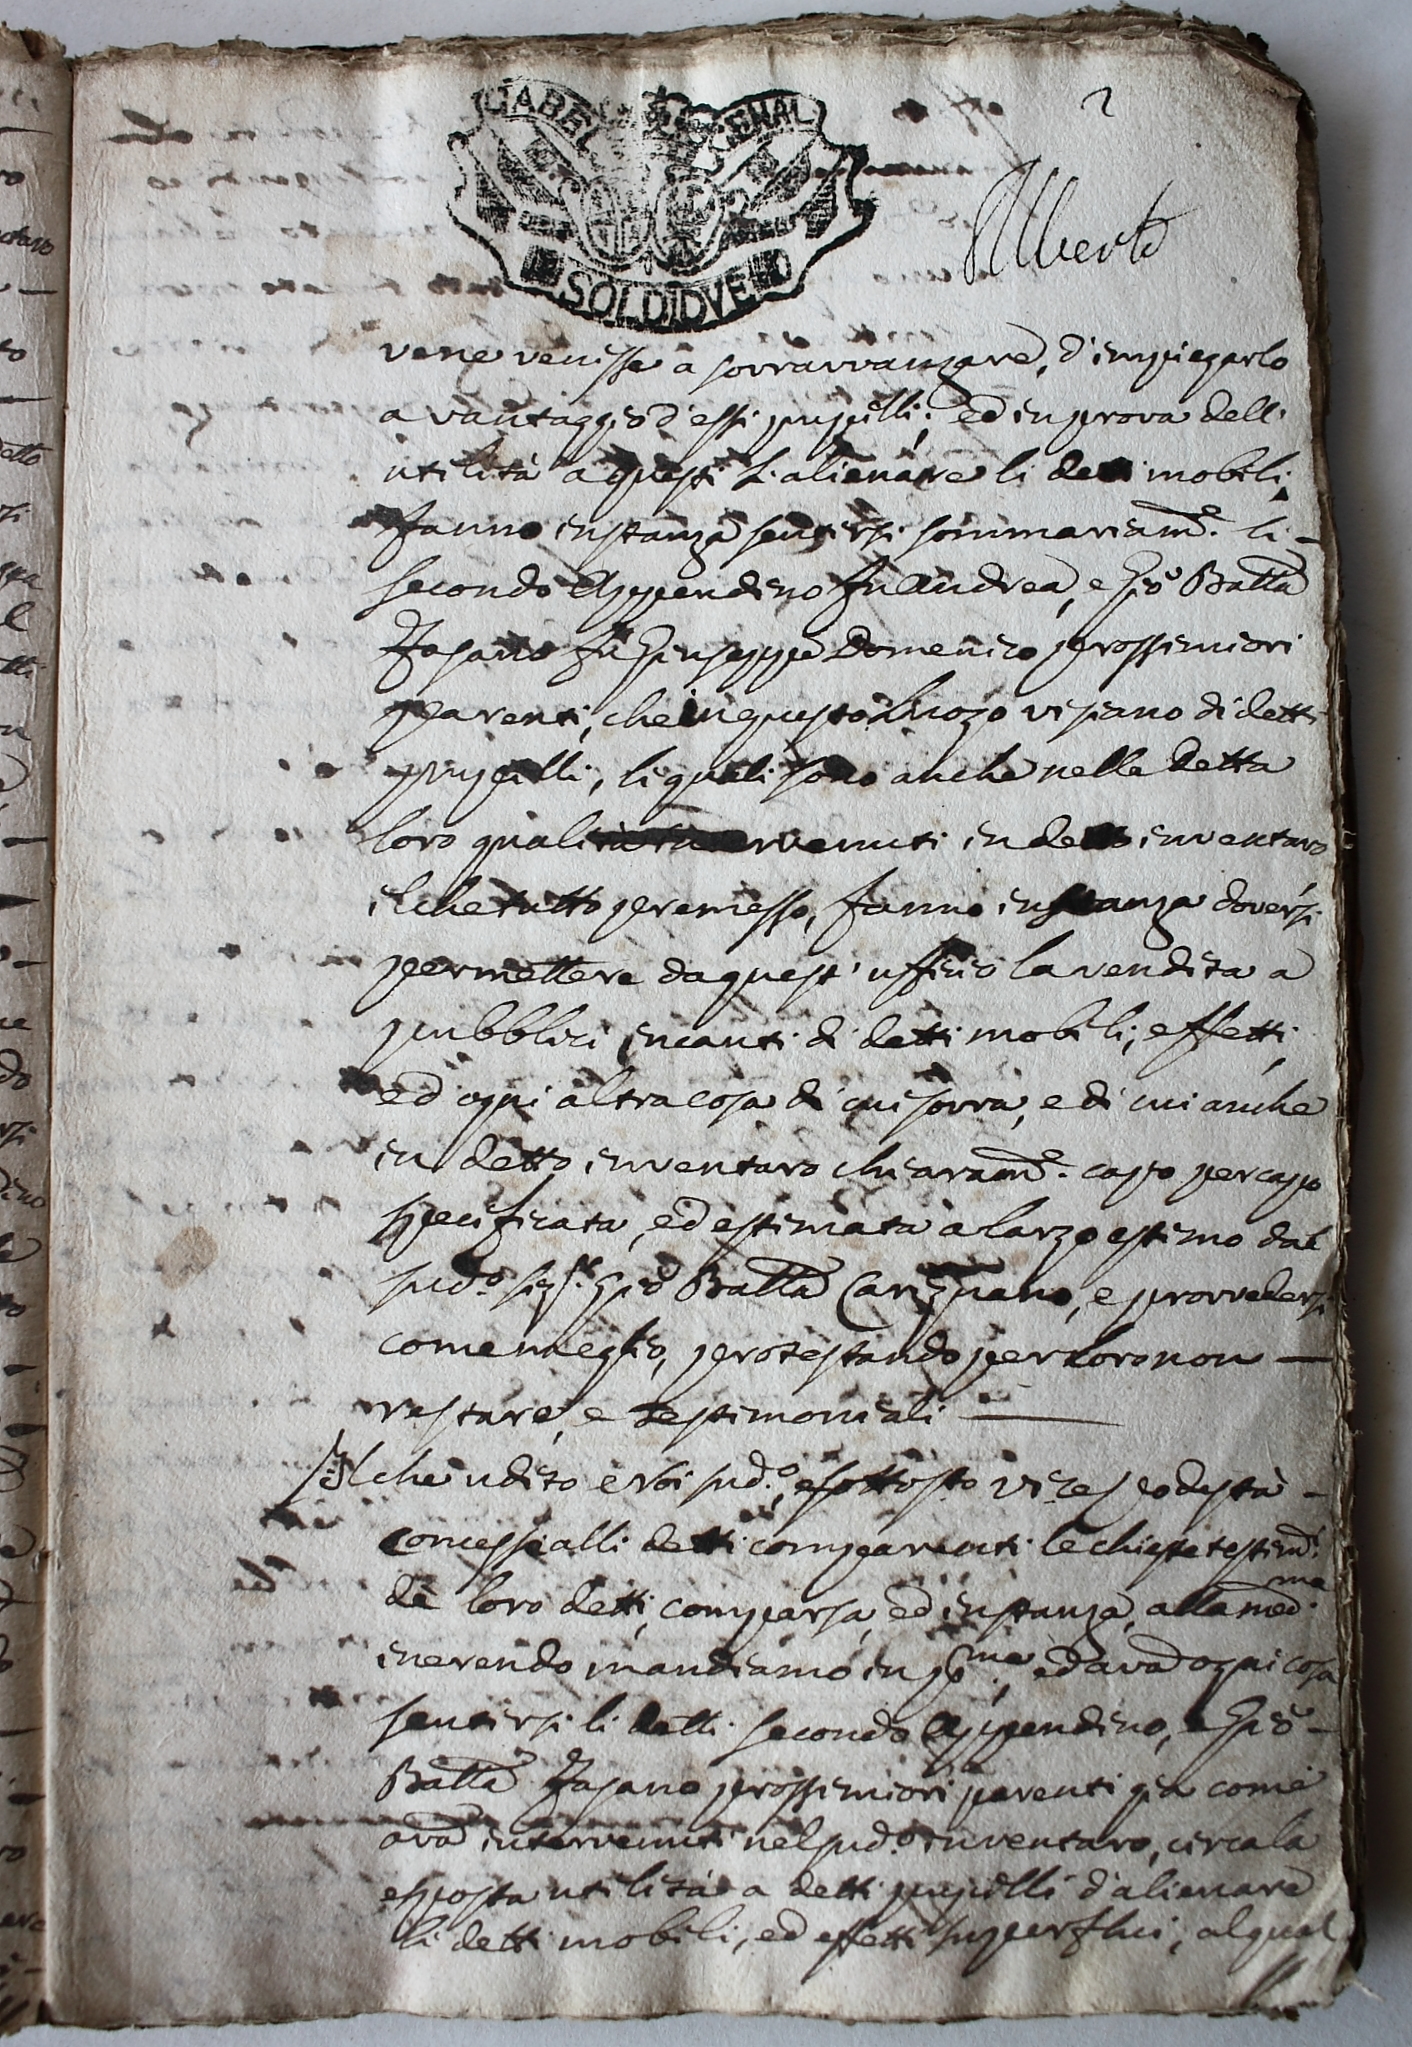 2
GABEL GENERAL
Alberto
SOLDI DVE
vene venisse a sovravvanzare, d'impiegarlo
a vantaggio d'essi pupilli; ed in prova dell'
utilità a questi d'alienare li detti mobili,
fanno instanza sentirsi sommariam.e li
secondo Appendino fu Andrea, e Gio Batta
Fasano fu Giuseppe Domenico prossimiori
parenti, che in questo Luogo visiano di detti
pupilli, li quali sono anche nella detta
loro qualità intervenuti in detto inventaro
il che tutto premesso, fanno instanza doversi
permettere da quest'uffizio la vendita a
pubblici incanti di detti mobili, effetti,
ed ogni altra cosa di cui sovra, e di cui anche
in detto inventaro chiaram.e capo per capo
specificata, ed estimata a largo estimo dal
sud.o sig.r Gio Batta Carignano, e provvedersi
come meglio, protestando per loro non
restare, e testimoniali
Il che udito e Noi sud.o, e sottos.to vice podestà
concessi alli detti comparenti le chieste testim.li
de loro detti, comparsa, ed instanza, alla med.ma
inerendo mandiamo in p.me, ed avad ogni cosa
sentirsi li detti secondo Appendino, e Gio
Batta Fasano prossimiori parenti già come
avad intervenuti nel sud.o inventaro, circa la
esposta utilità a detti pupilli d'alienare
li detti mobili, ed effetti superflui, al qual